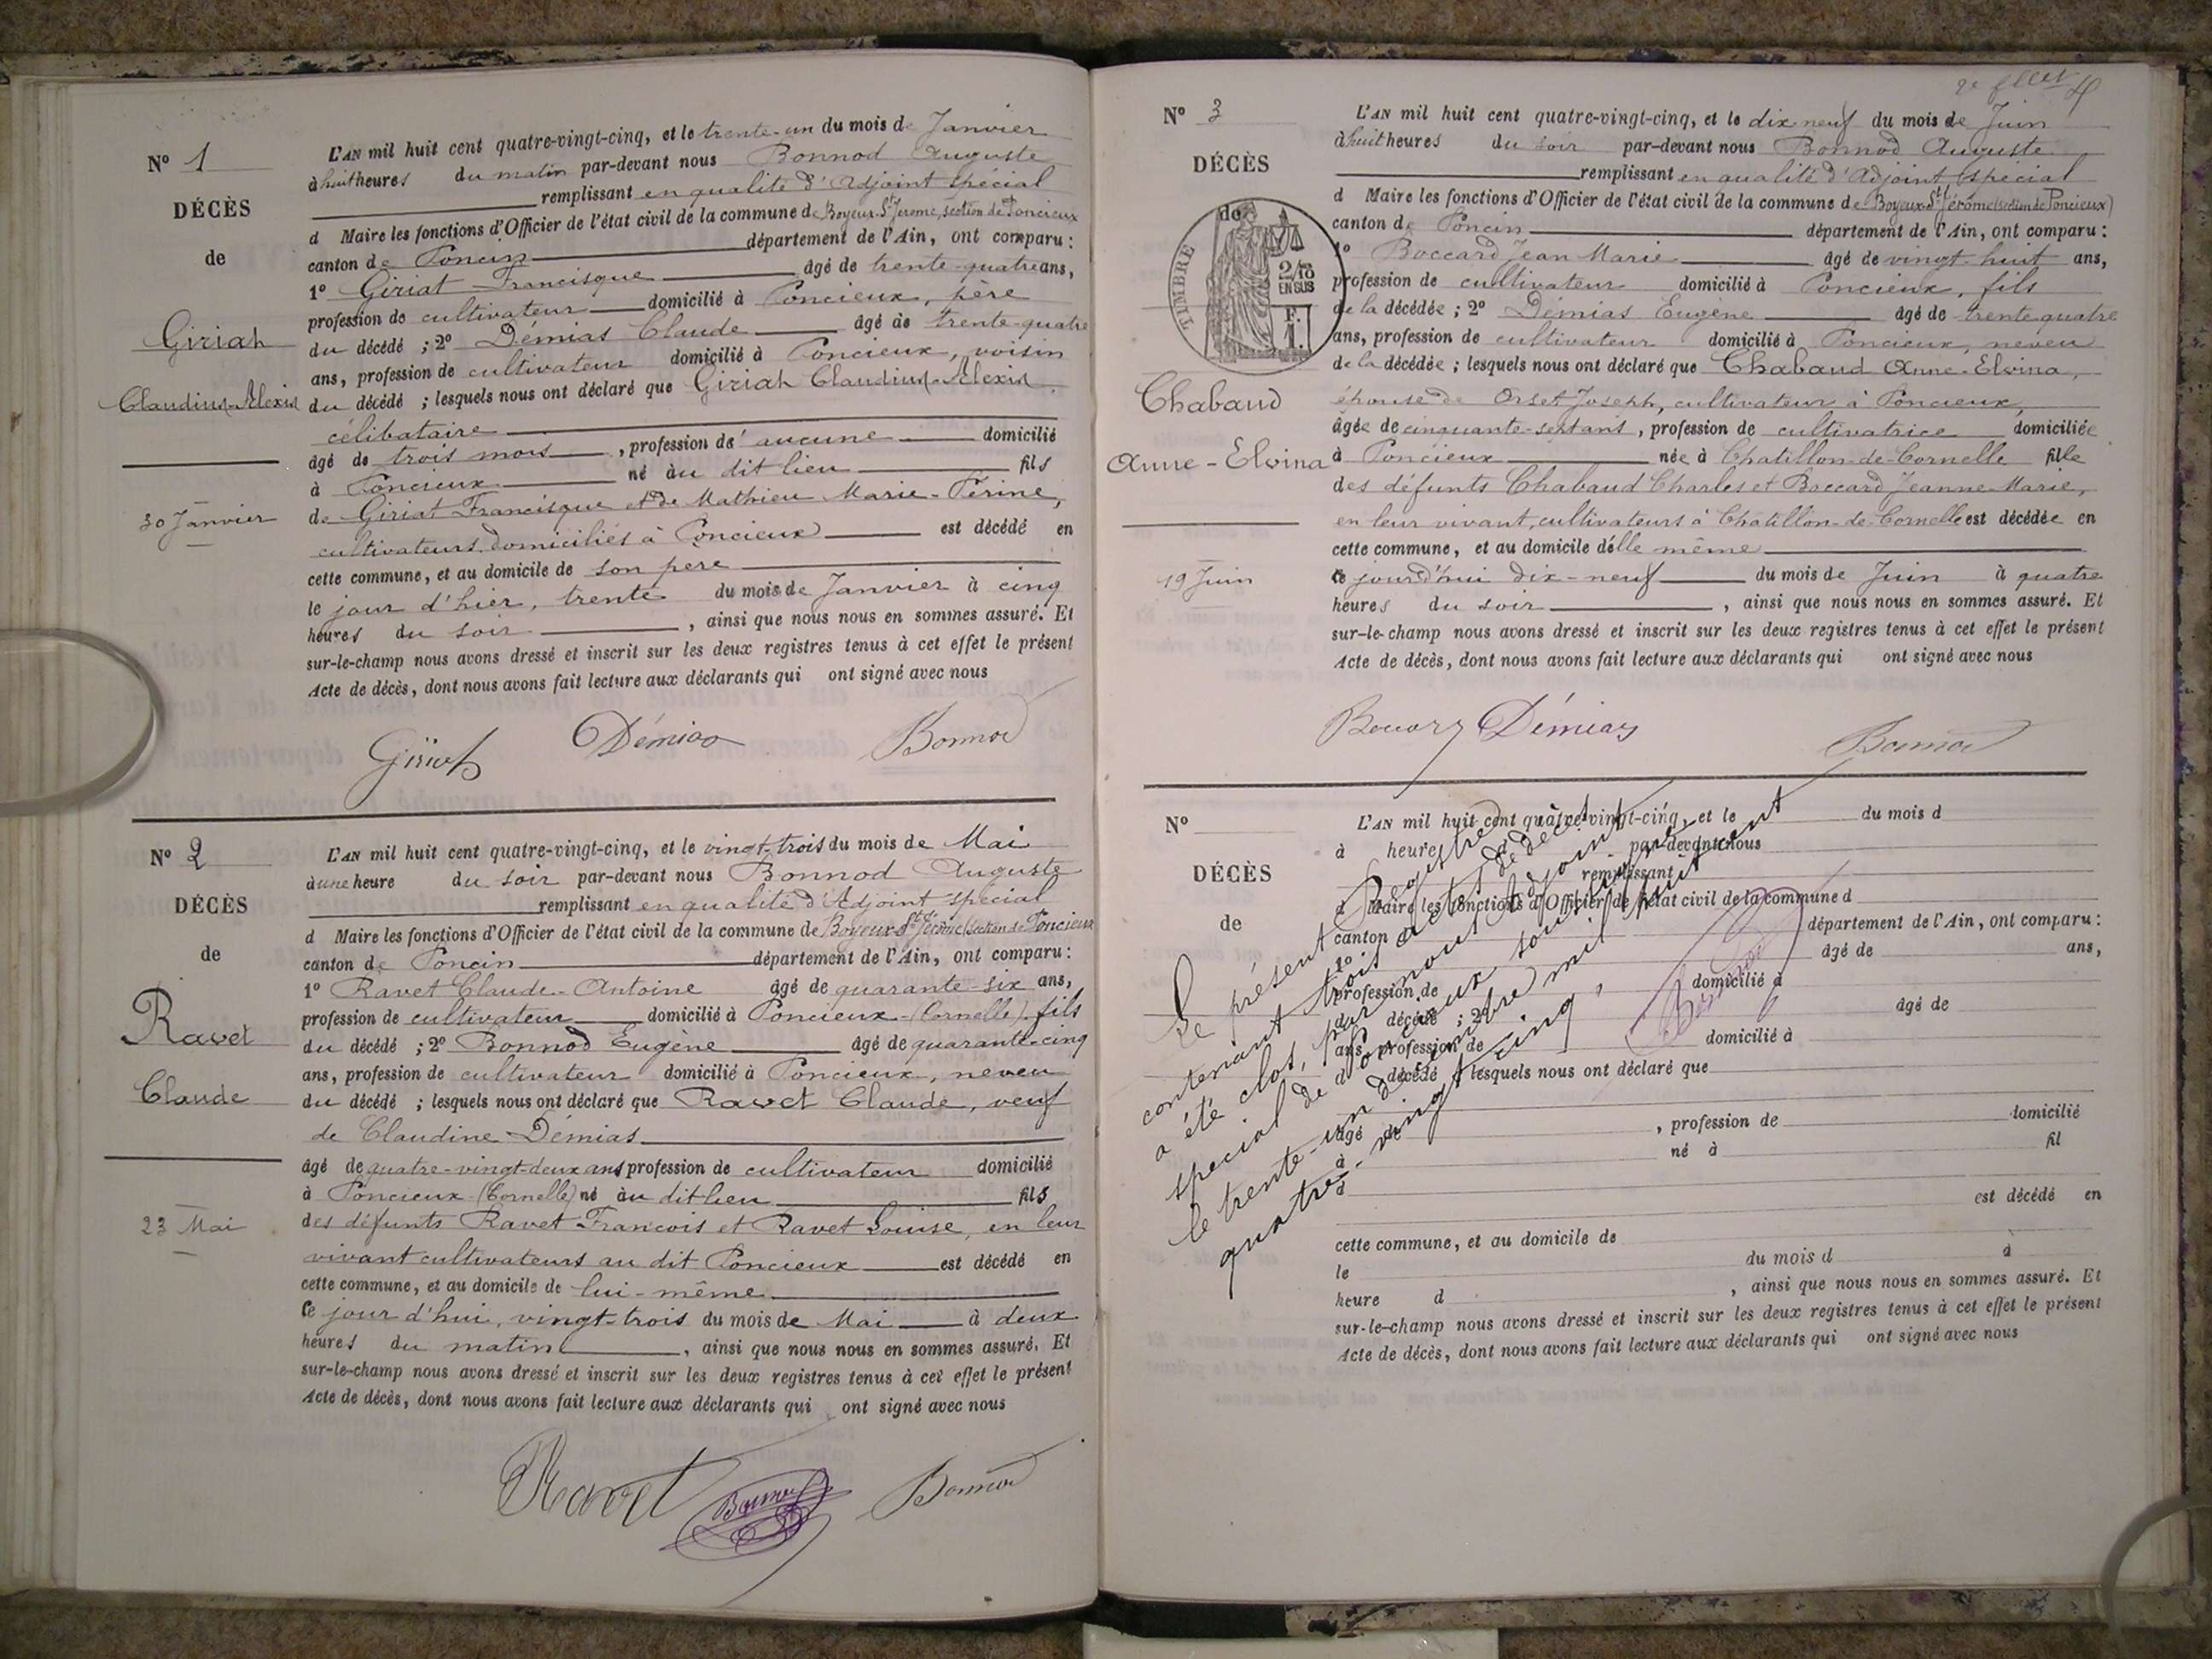 N° 1
DÉCÈS
de
Giriat
Claudius-Alexis
30 Janvier
L'AN mil huit cent quatre-vingt-cinq, et le trente-un du mois de Janvier
à huit heures du matin par-devant nous Bonnod Auguste
remplissant en qualité d'Adjoint spécial
d Maire les fonctions d'Officier de l'état civil de la commune de Boyeux-St Jerome, section de Poncieux
canton de Poncin département de l'Ain, ont comparu :
1° Giriat Francisque âgé de trente-quatre ans,
profession de cultivateur domicilié à Poncieux, père
du décédé ; 2° Démias Claude âgé de trente-quatre
ans, profession de cultivateur domicilié à Poncieux, voisin
du décédé ; lesquels nous ont déclaré que Giriat Claudius-Alexis,
célibataire
âgé de trois mois, profession d'aucune domicilié
à Poncieux né au dit lieu fils
de Giriat Francisque et de Mathieu Marie-Périne,
cultivateurs domiciliés à Poncieux est décédé en
cette commune, et au domicile de son père
le jour d'hier, trente du mois de Janvier à cinq
heures du soir, ainsi que nous nous en sommes assuré. Et
sur-le-champ nous avons dressé et inscrit sur les deux registres tenus à cet effet le présent
Acte de décès, dont nous avons fait lecture aux déclarants qui ont signé avec nous
Giriat Démias Bonnod
N° 2
DÉCÈS
de
Ravet
Claude
23 Mai
L'AN mil huit cent quatre-vingt-cinq, et le vingt-trois du mois de Mai
à une heure du soir par-devant nous Bonnod Auguste
remplissant en qualité d'Adjoint spécial
d Maire les fonctions d'Officier de l'état civil de la commune de Boyeux-St Jérôme (section de Poncieux
canton de Poncin département de l'Ain, ont comparu :
1° Ravet Claude-Antoine âgé de quarante-six ans,
profession de cultivateur domicilié à Poncieux-(Cornelle) fils
du décédé ; 2° Bonnod Eugène âgé de quarante-cinq
ans, profession de cultivateur domicilié à Poncieux, neveu
du décédé ; lesquels nous ont déclaré que Ravet Claude, veuf
de Claudine Démias
âgé de quatre-vingt-deux ans profession de cultivateur domicilié
à Poncieux-(Cornelle) né au dit lieu fils
des défunts Ravet François et Ravet Louise, en leur
vivant cultivateurs au dit Poncieux est décédé en
cette commune, et au domicile de lui-même
Ce jour d'hui, vingt-trois du mois de Mai à deux
heures du matin, ainsi que nous nous en sommes assuré. Et
sur-le-champ nous avons dressé et inscrit sur les deux registres tenus à cet effet le présent
Acte de décès, dont nous avons fait lecture aux déclarants qui ont signé avec nous
Ravet Bonnod Bonnod
N° 3
DÉCÈS
de
TIMBRE
2/10
EN SUS
F.
1.
Chabaud
Anne-Elvina
19 Juin
L'AN mil huit cent quatre-vingt-cinq, et le dix-neuf du mois de Juin
à huit heures du soir par-devant nous Bonnod Auguste
remplissant en qualité d'Adjoint spécial
d Maire les fonctions d'Officier de l'état civil de la commune de Boyeux-St Jérôme (section de Poncieux)
canton de Poncin département de l'Ain, ont comparu :
1° Boccard Jean Marie âgé de vingt-huit ans,
profession de cultivateur domicilié à Poncieux, fils
de la décédée ; 2° Démias Eugène âgé de trente-quatre
ans, profession de cultivateur domicilié à Poncieux, neveu
de la décédée ; lesquels nous ont déclaré que Chabaud Anne-Elvina,
épouse de Orset Joseph, cultivateur à Poncieux,
âgée de cinquante-sept ans, profession de cultivatrice domiciliée
à Poncieux née à Chatillon-de-Cornelle fille
des défunts Chabaud Charles et Boccard Jeanne-Marie,
en leur vivant, cultivateurs à Chatillon-de-Cornelle est décédée en
cette commune, et au domicile d'elle même
ce jourd'hui dix-neuf du mois de Juin à quatre
heures du soir, ainsi que nous nous en sommes assuré. Et
sur-le-champ nous avons dressé et inscrit sur les deux registres tenus à cet effet le présent
Acte de décès, dont nous avons fait lecture aux déclarants qui ont signé avec nous
Démias Bonnod
N°
DÉCÈS
de
L'AN mil huit cent quatre-vingt-cinq, et le du mois d
à heure d par-devant nous
remplissant
d Maire les fonctions d'Officier de l'état civil de la commune d
canton d département de l'Ain, ont comparu :
1° âgé de ans,
profession de domicilié à
d décédé ; 2° âgé de
ans, profession de domicilié à
d décédé ; lesquels nous ont déclaré que
âgé de , profession de domicilié
à né à fil
d
est décédé en
cette commune, et au domicile de
le du mois d à
heure d , ainsi que nous nous en sommes assuré. Et
sur-le-champ nous avons dressé et inscrit sur les deux registres tenus à cet effet le présent
Acte de décès, dont nous avons fait lecture aux déclarants qui ont signé avec nous
Le présent Registre
contenant trois actes de décès
a été clos, par nous adjoint
spécial de Poncieux soussigné,
le trente-un décembre mil huit cent
quatre-vingt-cinq,
Bonnod